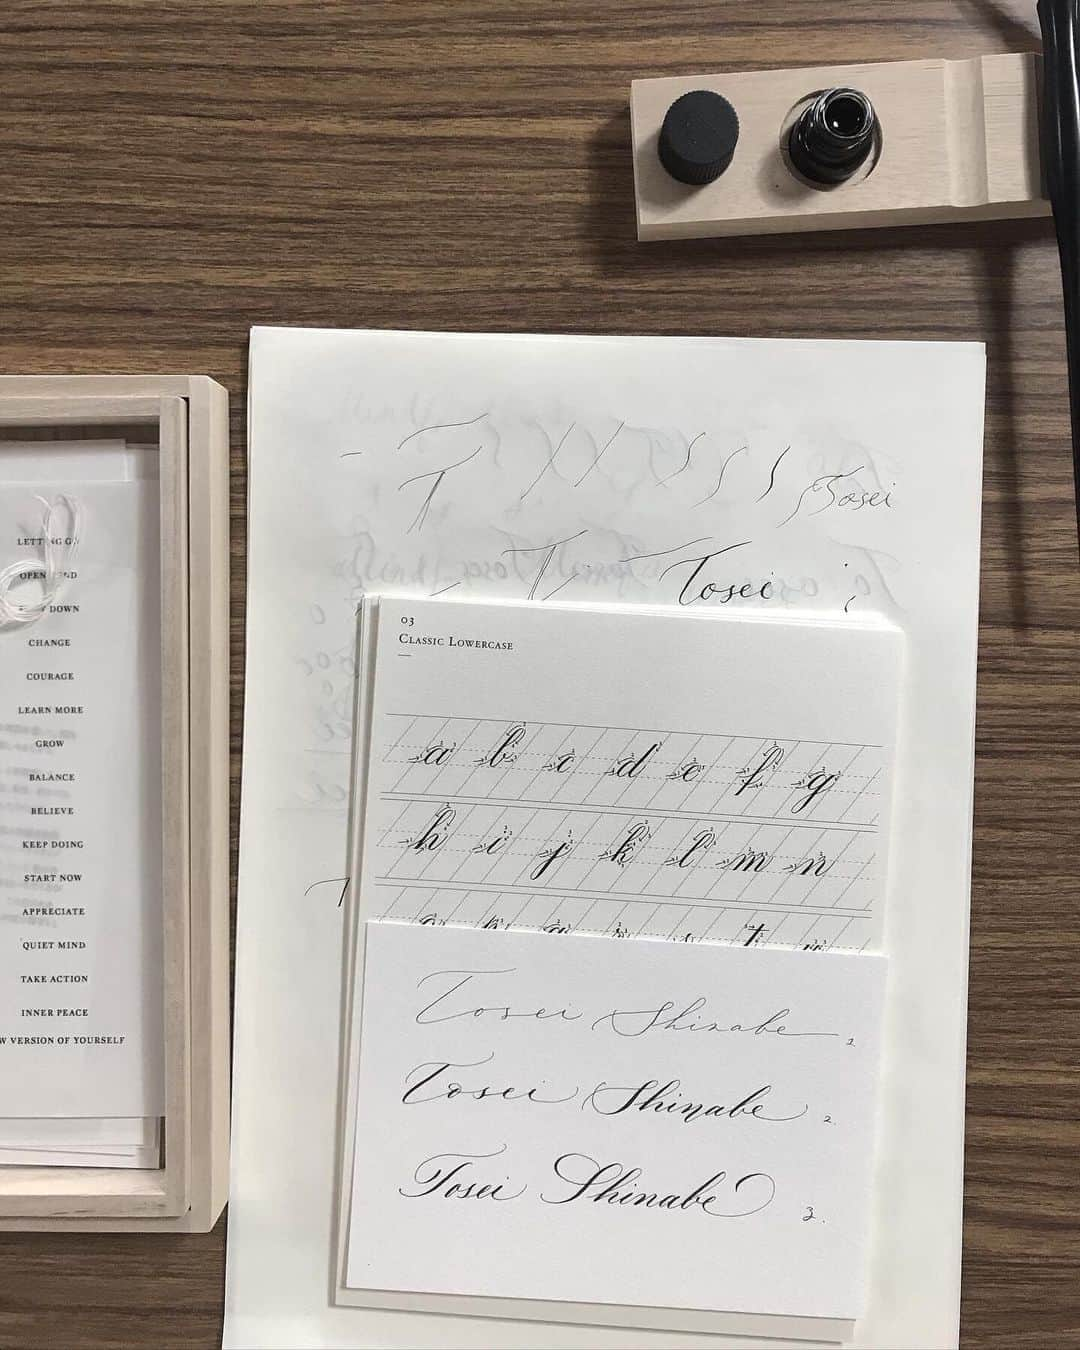 LETTING GO
OPEN
DOWN
CHANGE
COURAGE
LEARN MORE
GROW
BALANCE
BELIEVE
KEEP DOING
START NOW
APPRECIATE
QUIET MIND
TAKE ACTION
INNER PEACE
VERSION OF YOURSELF
T
T
Tosei
T
Tosei
03
CLASSIC LOWERCASE
a b c d e f g
h i j k l m n
o p q r s t u
Tosei Shinabe 1.
Tosei Shinabe 2.
Tosei Shinabe 3.